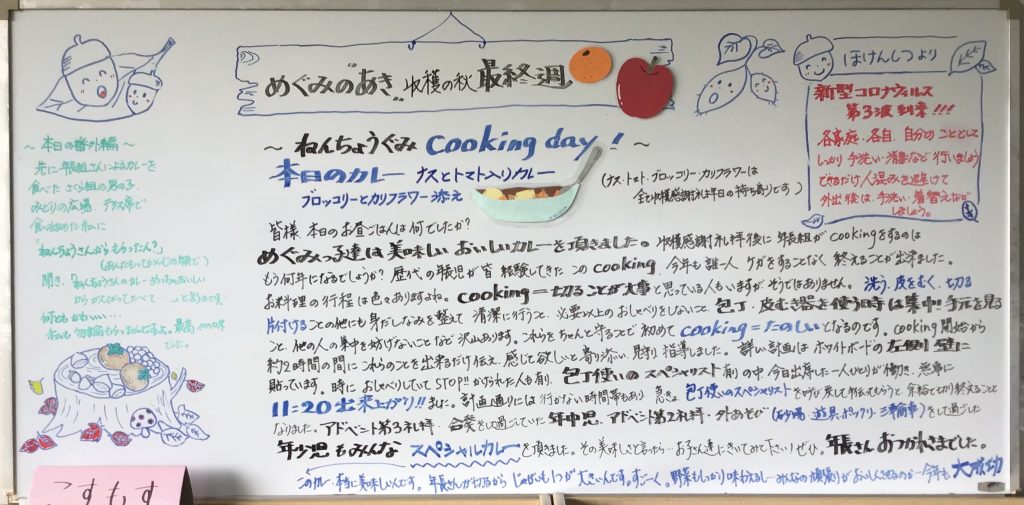 めぐみの"あき" 収穫の秋 最終週
～ ねんちょうぐみ cooking day! ～
本日のカレー ナスとトマト入りカレー
ブロッコリーとカリフラワー添え
(ナス・トマト・ブロッコリー・カリフラワーは
全て収穫感謝礼拝日の持ち寄りです)
～ 本日の番外編 ～
先に年長組さんによるカレーを
食べた さくら組の男の子。
みどりの広場、テラス等で
食べ始めた 私に
「ねんちょうさんからもらったん?」
聞き、「ねんちょうさんのカレーめっちゃおいしい
何ともかわいい…
ほけんしつより
新型コロナウィルス
第3波到来!!!
各家庭・各自、自分のこととして
しっかり手洗い・消毒など行いましょう
できるだけ人混みを避けて
外出後は、手洗い・着替えなど
しましょう。
皆様、本日のお昼ごはんは何でしたか?
めぐみっ子達は美味しいおいしいカレーを頂きました。収穫感謝礼拝後に年長組がcookingをするのは
もう何年になるでしょうか? 歴代の年長児が皆経験してきた このcooking、今年も誰一人ケガをすることなく終えることが出来ました。
お料理の行程は色々ありますよね。cooking=切ることが大事と思っている人もいますがそうではありません。洗う、皮をむく、切る
片付けることの他にも身だしなみを整えて 清潔に行うこと、必要以上のおしゃべりをしないこと、包丁・皮むき器を使う時は集中!手元を見る
こと、他の人の集中を妨げないことなど沢山あります。これらをちゃんと守ることで初めて cooking=たのしいとなるのです。cooking開始から
約2時間の間に これらのことを出来るだけ伝え、感じて欲しいと寄り添い、見守り、指導しました。詳しい計画はホワイトボードの左側壁に
貼っています。時におしゃべりしていてSTOP!!かけられた人も有り、包丁使いのスペシャリスト
11:20出来上がり!!ました。計画通りには行かない時間等もあり、急きょ、包丁使いのスペシャリストを呼び戻して手伝ってもらうと 余裕で切り終えることと
なりました。アドベント第3礼拝・合奏をして過ごしていた年中児、アドベント第2礼拝・外あそび(砂場、遊具、ポックリ、三輪車)をして過ごした
年少児もみんな スペシャルカレーを頂きました。その美味しさと言ったら…お子さん達にきいてみて下さい!ぜひ。年長さんおつかれさまでした。
このカレー、本当に美味しいんです。年長さんが切るから じゃがいも1つが大きいんです。すごーく。野菜もしっかり味わえるし…みんなの頑張りがおいしくさせるのが… 今年も大成功
こすもす